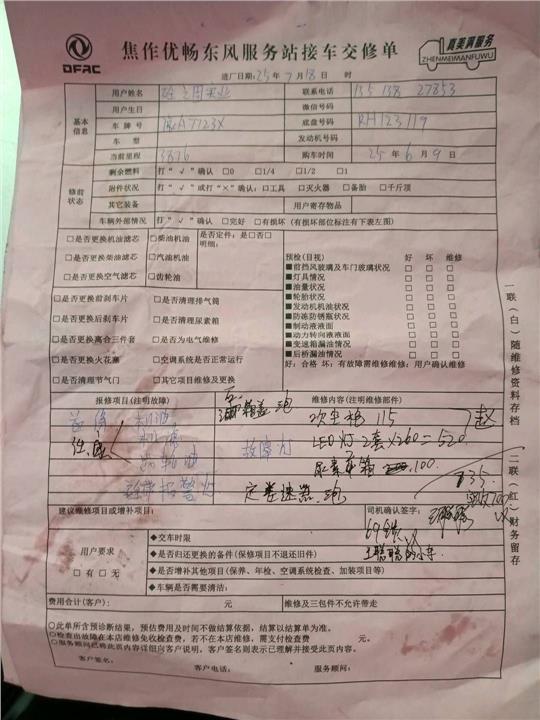 DFAC
焦作优畅东风服务站接车交修单
真美满服务
ZHENMEIMANFUWU
进厂日期:25年7月18日 时
基本信息
用户姓名 联系电话 135 138 27853
用户生日 微信号码
车牌号 豫A7723X 底盘号码 RH123119
车型 发动机号码
当前里程 3876 购车时间 25年6月9日
修前状态
剩余燃料 打“√”确认 □0 □1/4 □1/2 □1
附件状况 打“√”或打“×”确认:□工具 □灭火器 □备胎 □千斤顶
其它装备 用户寄存物品
车辆外部情况 打“√”确认 □完好 □有损坏(有损坏部位标注有下表左图)
□是否更换机油滤芯 □柴油机油 是否定件:是□否□
明细:
□是否更换柴油滤芯 □汽油机油
□是否更换空气滤芯 □齿轮油
□是否更换前刹车片 □是否清理排气筒
□是否更换后刹车片 □是否清理尿素箱
□是否更换离合三件套 □是否为电气维修
□是否更换火花塞 □空调系统是否正常运行
□是否清理节气门 □其它项目维修及更换
预检(目视) 好 坏 维修
■前挡风玻璃及车门玻璃状况 □ □ □
■灯具情况 □ □ □
■油量状况 □ □ □
■轮胎状况 □ □ □
■发动机机油状况 □ □ □
■防冻防锈瓶状况 □ □ □
■制动液液面 □ □ □
■动力转向液液面 □ □ □
■变速箱漏油情况 □ □ □
■后桥漏油情况 □ □ □
好:合格 坏:有故障需维修维修:用户确认维修
一联(白)随维修资料存档
二联(红)财务留存
报修项目(注明故障) 维修内容(注明维修部件)
115 赵
LED灯2套×260=520
故障灯
尿素 箱 100.
735
报警灯
建议维修项目或增补项目: 司机确认签字:
用户要求
□有 □无
◆交车时限
◆是否归还更换的备件(保修项目不退还旧件)
◆是否增补其他项目(保养、年检、空调系统检查、加装项目等)
◆车辆是否需要清洁:
费用合计(客户): 元 维修及三包件不允许带走
○此单所含预诊断结果,预估费用及时间不做结算依据,结算以结算单为准。
○检查出故障在本店维修免收检查费,若不在本店维修,需支付检查费 元。
○服务顾问已将此页内容详细向客户说明。客户签名则表示已理解并接受此页内容。
客户签名: 客户电话: 服务顾问: